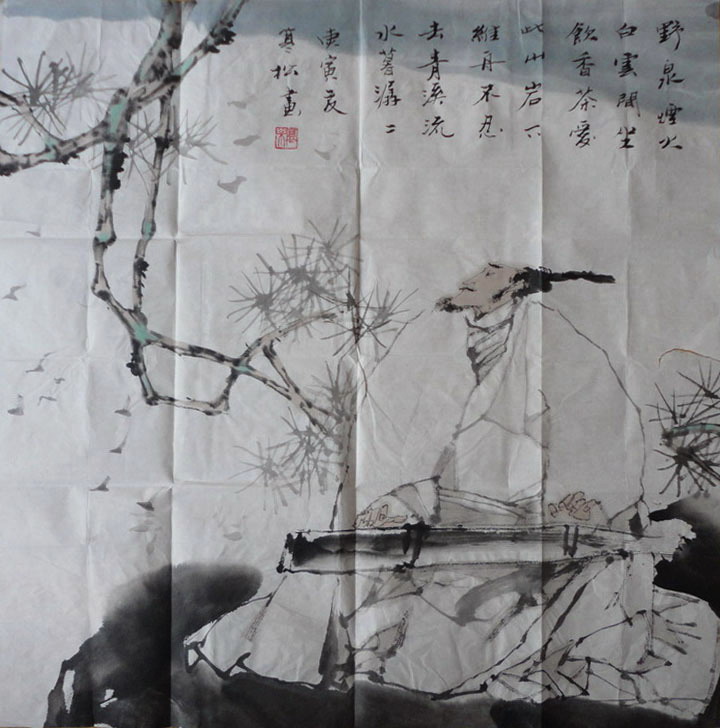 野泉煙火
白雲間坐
飲香茶愛
此山岩下
維舟不忍
去青溪流
水暮潺〻
庚寅夏
寒松畫